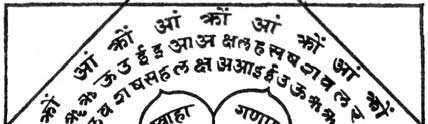 क्रों आं क्रों आं क्रों आं क्रों आं क्रों
ऊ उ ई इ आ अ क्ष ल ह स ष श व ल
व श ष स ह ल क्ष अ आ इ ई उ ऊ ऋ
वाहा